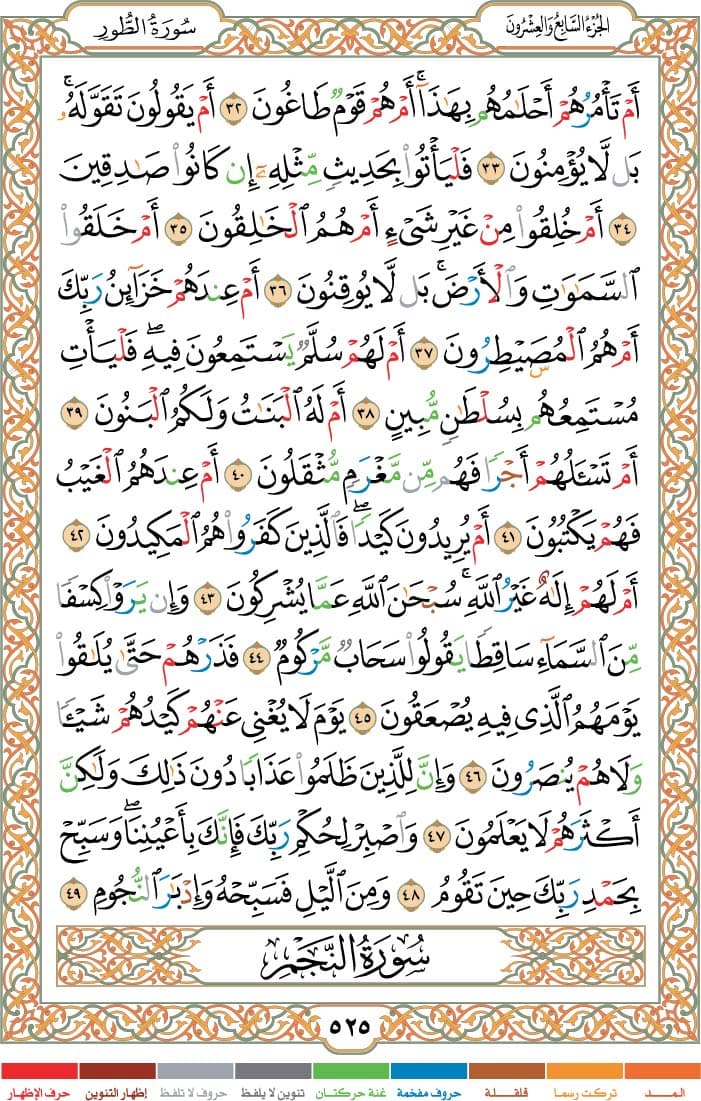 الجُزْءُ السَّابِعُ وَالعِشْرُونَ
سُورَةُ الطُّورِ
أَمْ تَأْمُرُهُمْ أَحْلَامُهُم بِهَٰذَآ ۚ أَمْ هُمْ قَوْمٌ طَاغُونَ ٣٢ أَمْ يَقُولُونَ تَقَوَّلَهُۥ ۚ
بَل لَّا يُؤْمِنُونَ ٣٣ فَلْيَأْتُوا۟ بِحَدِيثٍ مِّثْلِهِۦٓ إِن كَانُوا۟ صَٰدِقِينَ
٣٤ أَمْ خُلِقُوا۟ مِنْ غَيْرِ شَىْءٍ أَمْ هُمُ ٱلْخَٰلِقُونَ ٣٥ أَمْ خَلَقُوا۟
ٱلسَّمَٰوَٰتِ وَٱلْأَرْضَ ۚ بَل لَّا يُوقِنُونَ ٣٦ أَمْ عِندَهُمْ خَزَآئِنُ رَبِّكَ
أَمْ هُمُ ٱلْمُصَۣيْطِرُونَ ٣٧ أَمْ لَهُمْ سُلَّمٌ يَسْتَمِعُونَ فِيهِ ۖ فَلْيَأْتِ
مُسْتَمِعُهُم بِسُلْطَٰنٍ مُّبِينٍ ٣٨ أَمْ لَهُ ٱلْبَنَٰتُ وَلَكُمُ ٱلْبَنُونَ ٣٩
أَمْ تَسْـَٔلُهُمْ أَجْرًا فَهُم مِّن مَّغْرَمٍ مُّثْقَلُونَ ٤٠ أَمْ عِندَهُمُ ٱلْغَيْبُ
فَهُمْ يَكْتُبُونَ ٤١ أَمْ يُرِيدُونَ كَيْدًا ۖ فَٱلَّذِينَ كَفَرُوا۟ هُمُ ٱلْمَكِيدُونَ ٤٢
أَمْ لَهُمْ إِلَٰهٌ غَيْرُ ٱللَّهِ ۚ سُبْحَٰنَ ٱللَّهِ عَمَّا يُشْرِكُونَ ٤٣ وَإِن يَرَوْا۟ كِسْفًا
مِّنَ ٱلسَّمَآءِ سَاقِطًا يَقُولُوا۟ سَحَابٌ مَّرْكُومٌ ٤٤ فَذَرْهُمْ حَتَّىٰ يُلَٰقُوا۟
يَوْمَهُمُ ٱلَّذِى فِيهِ يُصْعَقُونَ ٤٥ يَوْمَ لَا يُغْنِى عَنْهُمْ كَيْدُهُمْ شَيْـًٔا
وَلَا هُمْ يُنصَرُونَ ٤٦ وَإِنَّ لِلَّذِينَ ظَلَمُوا۟ عَذَابًا دُونَ ذَٰلِكَ وَلَٰكِنَّ
أَكْثَرَهُمْ لَا يَعْلَمُونَ ٤٧ وَٱصْبِرْ لِحُكْمِ رَبِّكَ فَإِنَّكَ بِأَعْيُنِنَا ۖ وَسَبِّحْ
بِحَمْدِ رَبِّكَ حِينَ تَقُومُ ٤٨ وَمِنَ ٱلَّيْلِ فَسَبِّحْهُ وَإِدْبَٰرَ ٱلنُّجُومِ ٤٩
سُورَةُ النَّجْمِ
٥٢٥
المــد تركت رسما قلقـلة حروف مفخمة غنة حركتان تنوين لا يلفظ حروف لا تلفظ إظهار التنوين حرف الإظهار